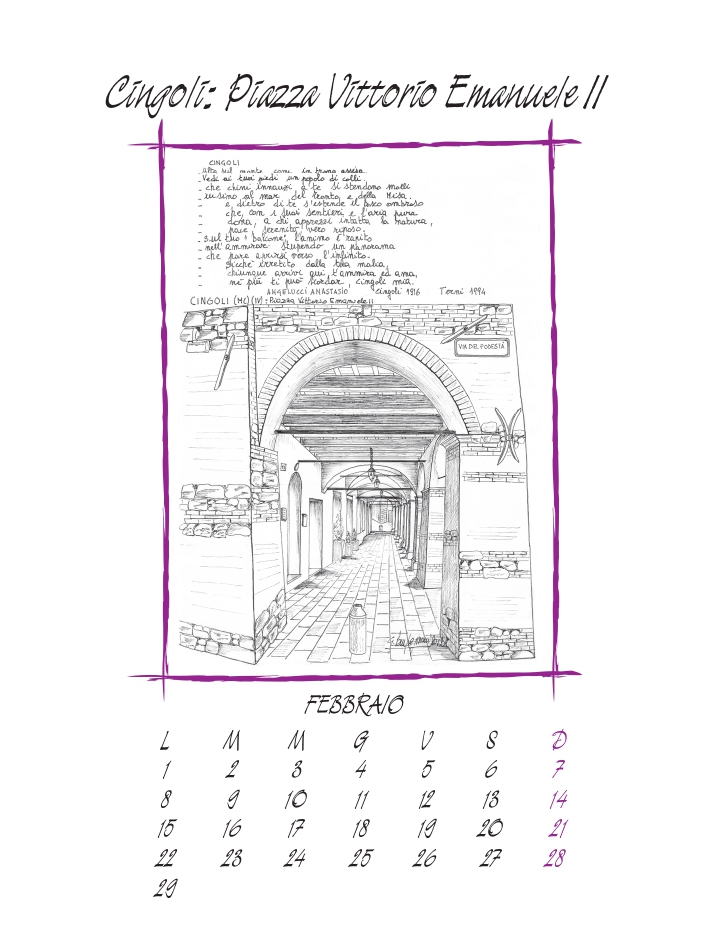 Cingoli: Piazza Vittorio Emanuele II
CINGOLI
Alta sul monte come in trono assisa
Vedi ai tuoi piedi un popolo di colli
- che chini innanzi a te si stendono molli
- insino al mar del Tronto e della Misa.
- e dietro di te s'estende il fosco ombroso
- che, con i suoi sentieri e l'aria pura
- dona, a chi apprezzi intatta la natura,
- pace, serenità, vero riposo.
- Sul tuo "balcone", l'animo è rapito
- nell'ammirare stupendo un panorama
- che pare aprirsi verso l'infinito.
- Sicché irretito dalla tua malia,
- chiunque arrivi qui, t'ammira ed ama,
- né più ti può scordar, Cingoli mia.
ANGELUCCI ANASTASIO Cingoli 1916 Terni 1994
CINGOLI (MC) (IV): Piazza Vittorio Emanuele II
VIA DEL PODESTÀ
FEBBRAIO
L M M G V S D
1 2 3 4 5 6 7
8 9 10 11 12 13 14
15 16 17 18 19 20 21
22 23 24 25 26 27 28
29